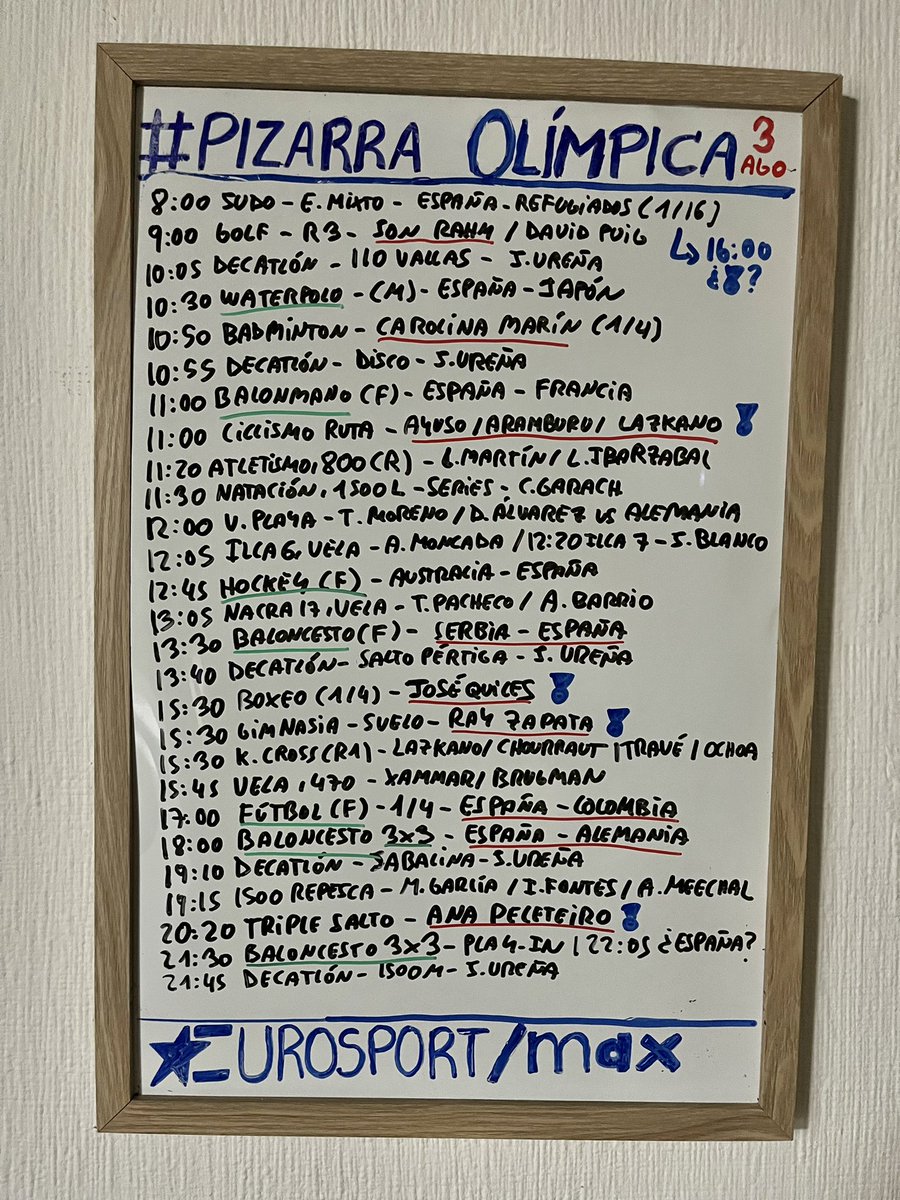 #PIZARRA OLÍMPICA 3 AGO
8:00 JUDO - E. MIXTO - ESPAÑA - REFUGIADOS (1/16)
↳ 16:00 ¿🏅?
9:00 GOLF - R3 - JON RAHM / DAVID PUIG
10:05 DECATLÓN - 110 VALLAS - J. UREÑA
10:30 WATERPOLO - (M) - ESPAÑA - JAPÓN
10:50 BADMINTON - CAROLINA MARÍN (1/4)
10:55 DECATLÓN - DISCO - J. UREÑA
11:00 BALONMANO (F) - ESPAÑA - FRANCIA
11:00 CICLISMO RUTA - AYUSO / ARAMBURU / LAZKANO
11:20 ATLETISMO, 800 (R) - L. MARTÍN / L. IBARZABAL
11:30 NATACIÓN, 1500L - SERIES - C. GARACH
12:00 V. PLAYA - T. MORENO / D. ÁLVAREZ VS ALEMANIA
12:05 ILCA 6, VELA - A. MONCADA / 12:20 ILCA 7 - J. BLANCO
12:45 HOCKEY (F) - AUSTRALIA - ESPAÑA
13:05 NACRA 17, VELA - T. PACHECO / A. BARRIO
13:30 BALONCESTO (F) - SERBIA - ESPAÑA
13:40 DECATLÓN - SALTO PÉRTIGA - J. UREÑA
15:30 BOXEO (1/4) - JOSÉ QUILES
15:30 GIMNASIA - SUELO - RAY ZAPATA
15:30 K. CROSS (R1) - LAZKANO / CHOURRAUT / TRAVÉ / OCHOA
15:45 VELA, 470 - XAMMAR / BRUGMAN
17:00 FÚTBOL (F) - 1/4 - ESPAÑA - COLOMBIA
18:00 BALONCESTO 3x3 - ESPAÑA - ALEMANIA
19:10 DECATLÓN - JABALINA - J. UREÑA
19:15 1500 REPESCA - M. GARCÍA / I. FONTES / A. MEECHAL
20:20 TRIPLE SALTO - ANA PELETEIRO
21:30 BALONCESTO 3x3 - PLAY-IN | 22:05 ¿ESPAÑA?
21:45 DECATLÓN - 1500M - J. UREÑA
EUROSPORT/max